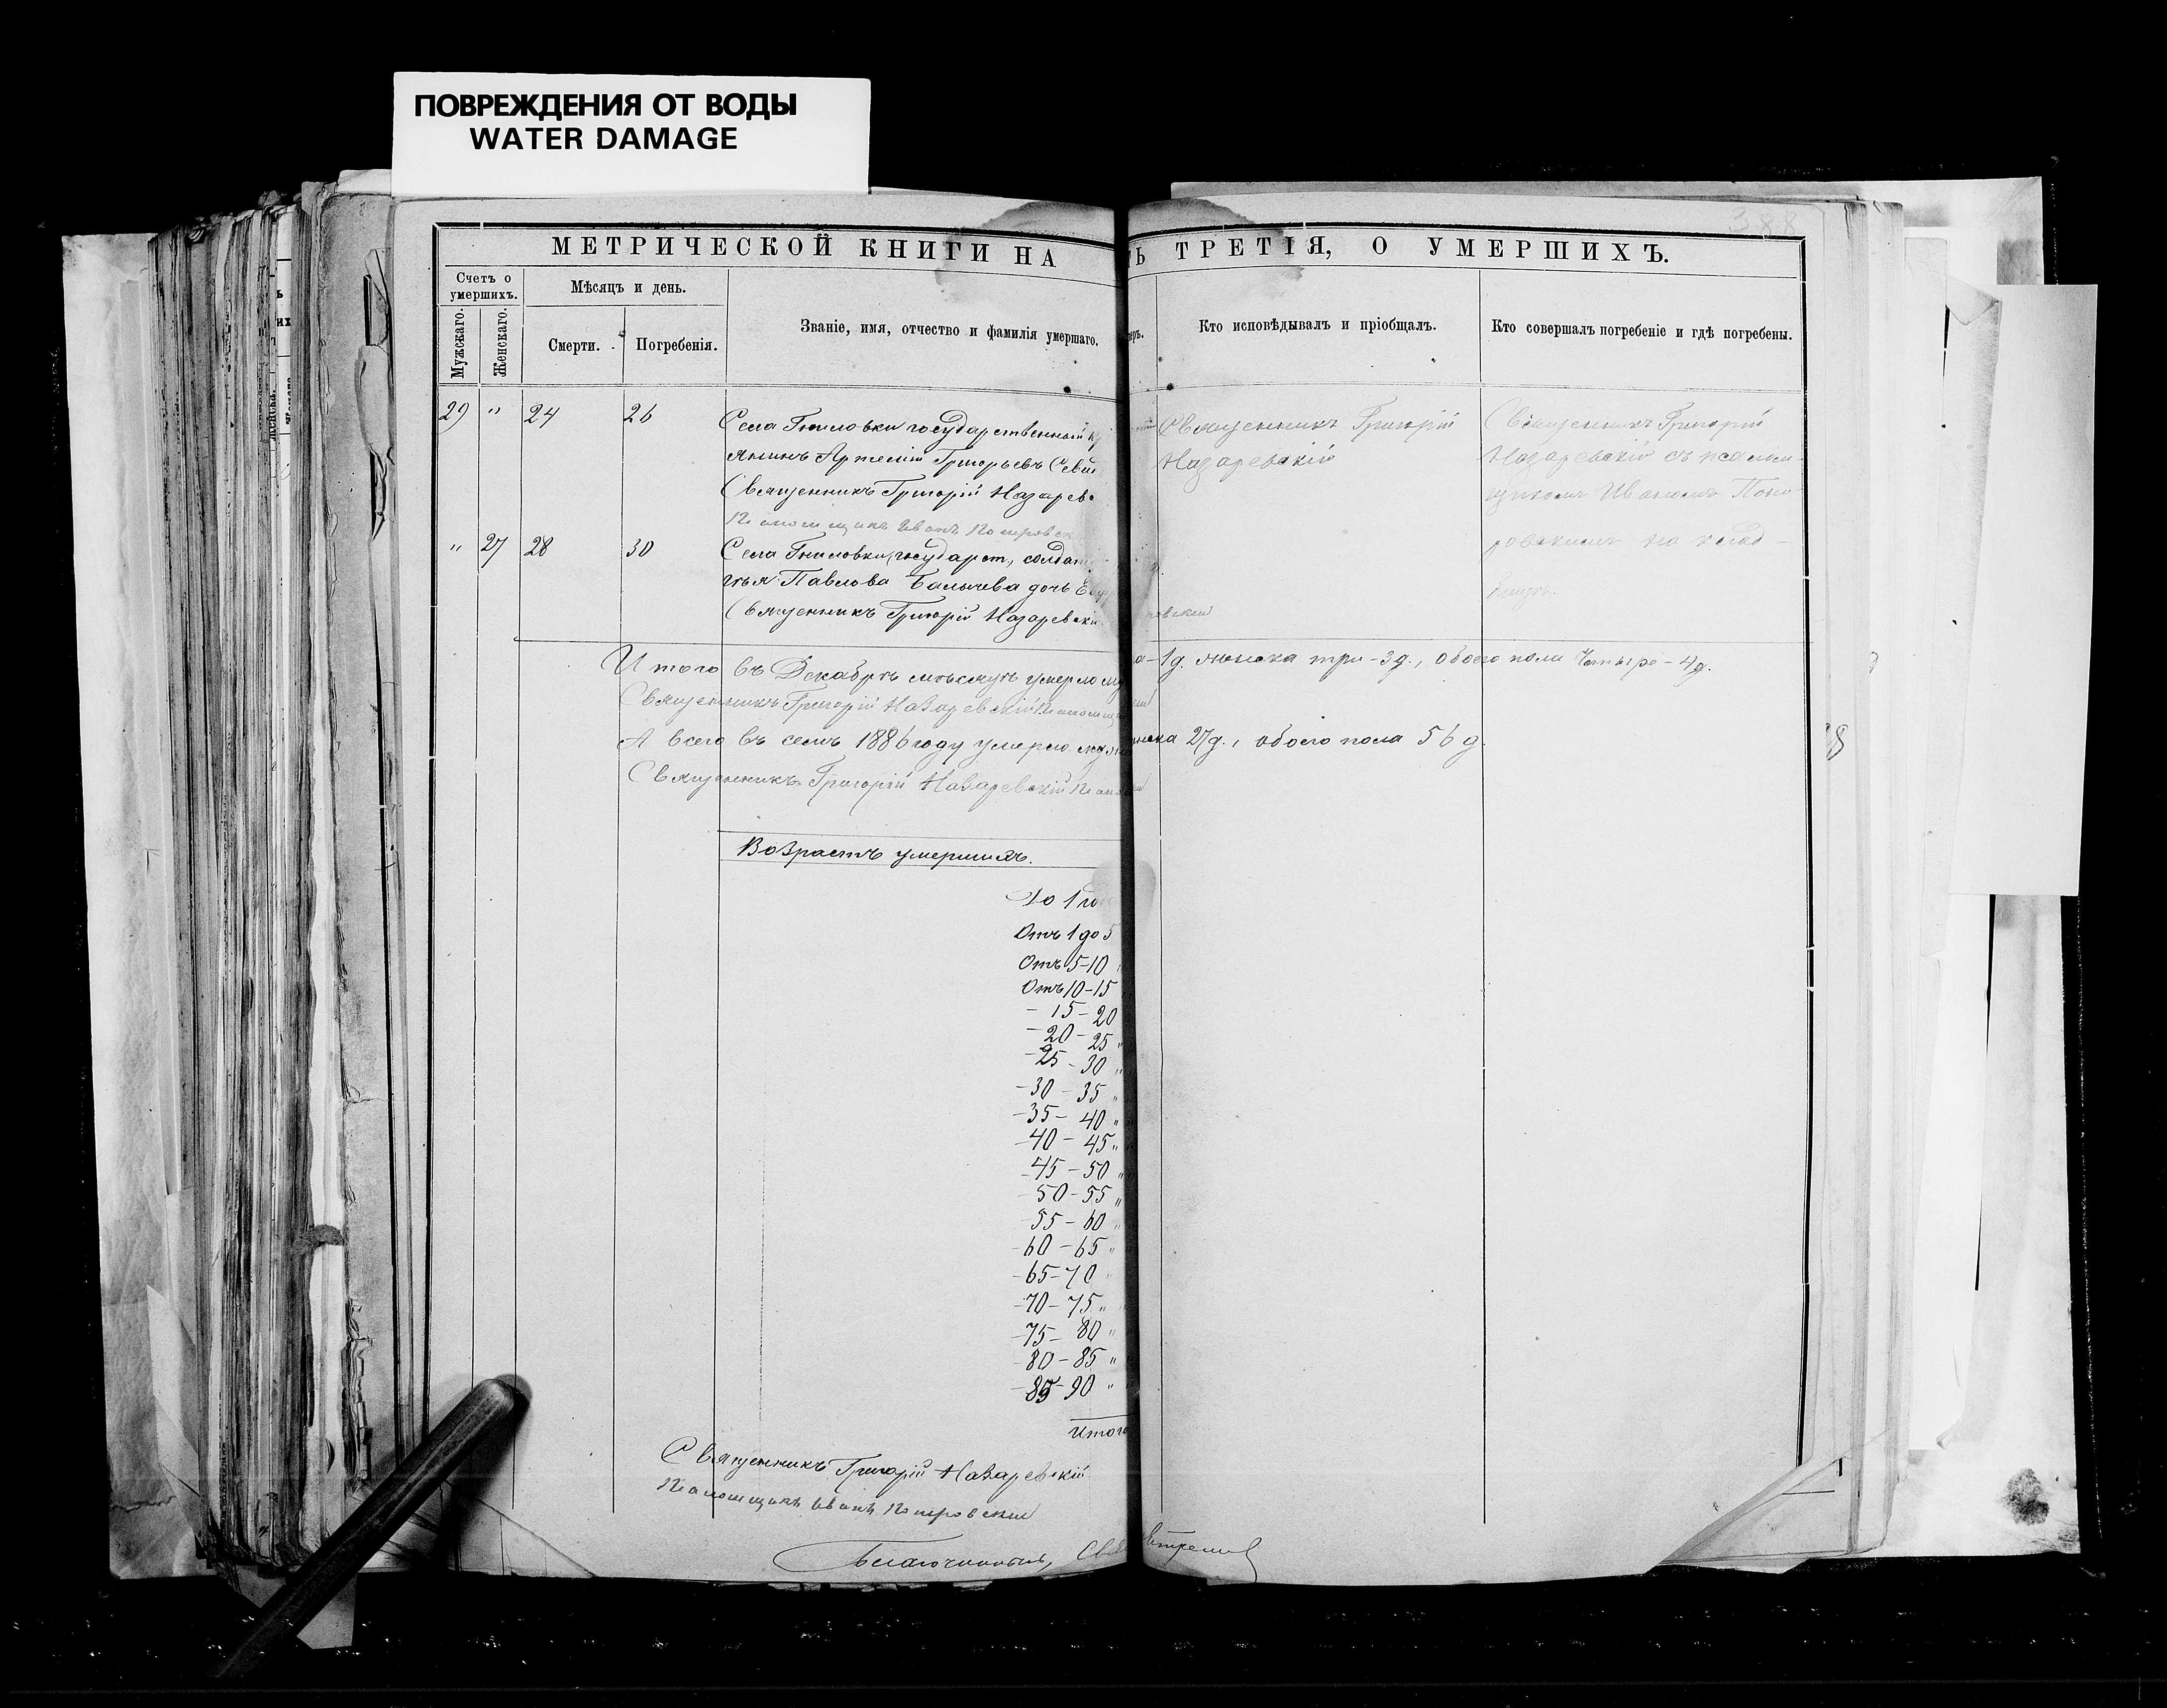 ПОВРЕЖДЕНИЯ ОТ ВОДЫ
WATER DAMAGE
388
МЕТРИЧЕСКОЙ КНИГИ НА
Ь ТРЕТІЯ, О УМЕРШИХЪ.
Счетъ о умершихъ.
Мужскаго.
Женскаго.
Мѣсяцъ и день.
Смерти.
Погребенія.
Званіе, имя, отчество и фамилія умершаго.
Кто исповѣдывалъ и пріобщалъ.
Кто совершалъ погребеніе и гдѣ погребены.
29 " 24 26
Села Гниловки государственный кр
янинъ Артемій Григорьевъ
Священникъ Григорій Назаревс
Псаломщикъ Иванъ Покровск
Священникъ Григорій
Назаревскій
Священникъ Григорій
Назаревскій съ псалом-
щикомъ Иваномъ Пок
ровскимъ на клад-
бищѣ.
" 27 28 30
Села Гниловки, государст, солдат
Павлова дочь
Священникъ Григорій Назаревскі
ровскій
Итого въ Декабрѣ мѣсяцѣ умерло му
а-1д. женска три-3д., обоего пола четыре-4д.
Священникъ Григорій Назаревскій Псаломщи
А всего въ семъ 1886 году умерло муж
женска 27д., обоего пола 56 д.
Священникъ Григорій Назаревскій Псало
Возрастъ умершихъ.
До 1 го
Отъ 1 до 5
Отъ 5-10
Отъ 10-15
- 15-20
- 20-25 "
- 25-30 "
- 30-35 "
- 35-40 "
- 40-45 "
- 45-50 "
- 50-55 "
55-60 "
- 60-65 "
- 65-70
- 70-75 "
- 75-80 "
- 80-85 "
- 85-90 "
Итого
Священникъ Григорій Назаревскій
Псаломщикъ Иванъ Покровскій
Благочинный, Свящ